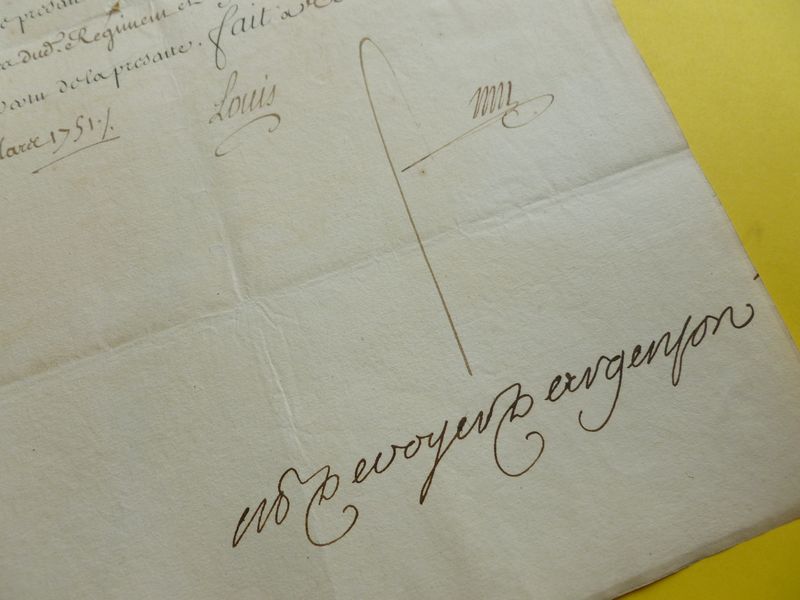 presante
dud. Regiment et
vertu de la presante. fait a
Mars 1751./.
Louis
De voyer D argenson